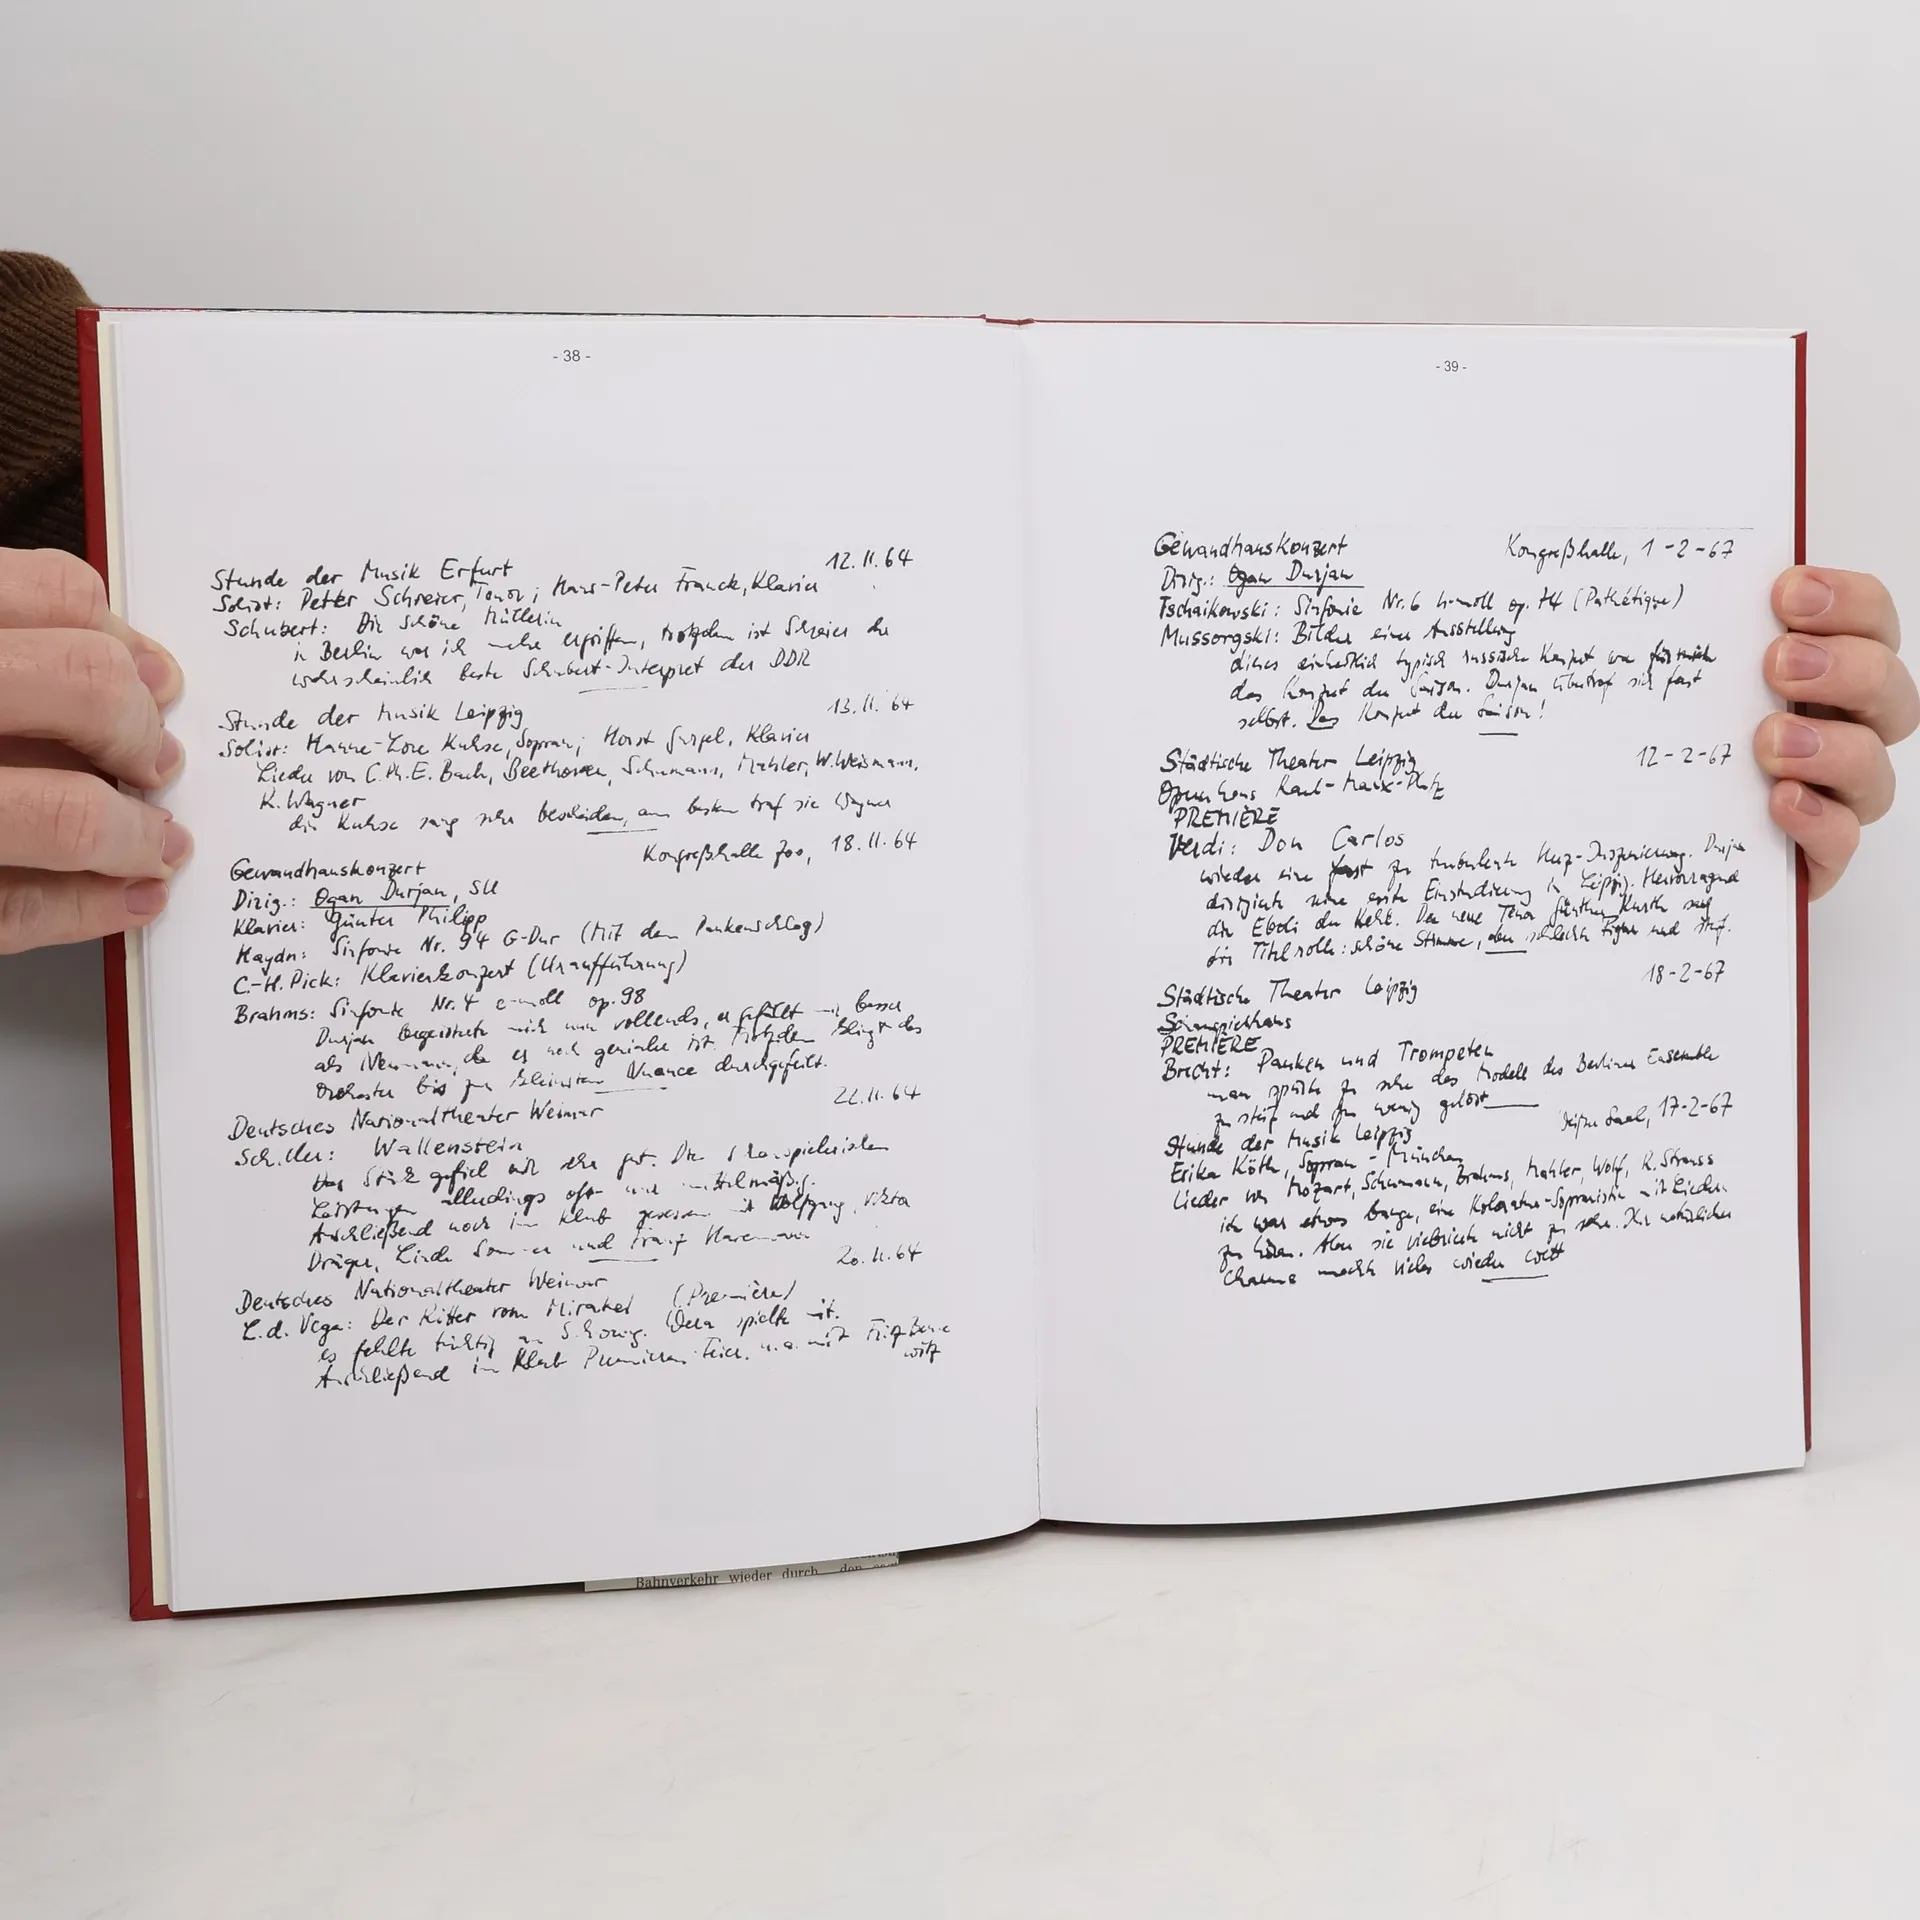 - 38 -
Stunde der Musik Erfurt 12.11.64
Solist: Peter Schreier, Tenor; Hans-Peter Franck, Klavier
Schubert: Die schöne Müllerin
in Berlin war ich mehr ergriffen, trotzdem ist Schreier der
wahrscheinlich beste Schubert-Interpret der DDR
Stunde der Musik Leipzig 13.11.64
Solist: Hanne-Lore Kuhse, Sopran; Horst Klavier
Lieder von C.Ph.E. Bach, Beethoven, Schumann, Mahler, W. Weismann,
R. Wagner
die Kuhse sang sehr bescheiden, am besten traf sie Wagner
Kongreßhalle Zoo, 18.11.64
Gewandhauskonzert
Dirig.: Ogan Durjan, SU
Klavier: Günter Philipp
Haydn: Sinfonie Nr. 94 G-Dur (Mit dem Paukenschlag)
C.-H. Pick: Klavierkonzert (Uraufführung)
Brahms: Sinfonie Nr. 4 e-moll op. 98
Durjan begeisterte mich nun vollends, er gefällt mir besser
als Neumann, da er noch genialer ist. Trotzdem klingt das
Orchester bis zur kleinsten Nuance durchgefeilt.
22.11.64
Deutsches Nationaltheater Weimar
Schiller: Wallenstein
Das Stück gefiel mir sehr gut. Die schauspielerischen
Leistungen allerdings oft nur mittelmäßig.
Anschließend noch im Klub gesessen mit Wolfgang,
Dräger, Linde Sommer und Franz
20.11.64
Deutsches Nationaltheater Weimar
L.d. Vega: Der Ritter vom Mirakel (Première)
es fehlte tüchtig an Schwung. spielte mit.
Anschließend im Klub Premieren-Feier. u.a. mit Fritz Benne
witz
Bahnverkehr wieder durch den
- 39 -
Gewandhauskonzert Kongreßhalle, 1-2-67
Dirig.: Ogan Durjan
Tschaikowski: Sinfonie Nr. 6 h-moll op. 74 (Pathétique)
Mussorgski: Bilder einer Ausstellung
dieses einheitlich typisch russische Konzert war für mich
das Konzert der Saison. Durjan übertraf sich fast
selbst. Das Konzert der Saison!
Städtische Theater Leipzig 12-2-67
Opernhaus Karl-Marx-Platz
PREMIÈRE
Verdi: Don Carlos
wieder eine fast zu turbulente Herz-Inszenierung. Durjan
dirigierte seine erste Einstudierung in Leipzig. Hervorragend
die Eboli der Kehl. Der neue Tenor Günther Kurth sang
die Titelrolle: schöne Stimme, aber schlechte Figur und steif.
18-2-67
Städtische Theater Leipzig
Schauspielhaus
PREMIÈRE
Brecht: Pauken und Trompeten
man spürte zu sehr das Modell des Berliner Ensemble
zu steif und zu wenig gelöst
Saal, 17-2-67
Stunde der Musik Leipzig
Erika Köth, Sopran - München
Lieder von Mozart, Schumann, Brahms, Mahler, Wolf, R. Strauss
ich war etwas bange, eine Koloratur-Sopranistin mit Liedern
zu hören. Aber sie vibrierte nicht zu sehr. Ihr natürlicher
Charme machte vieles wieder wett